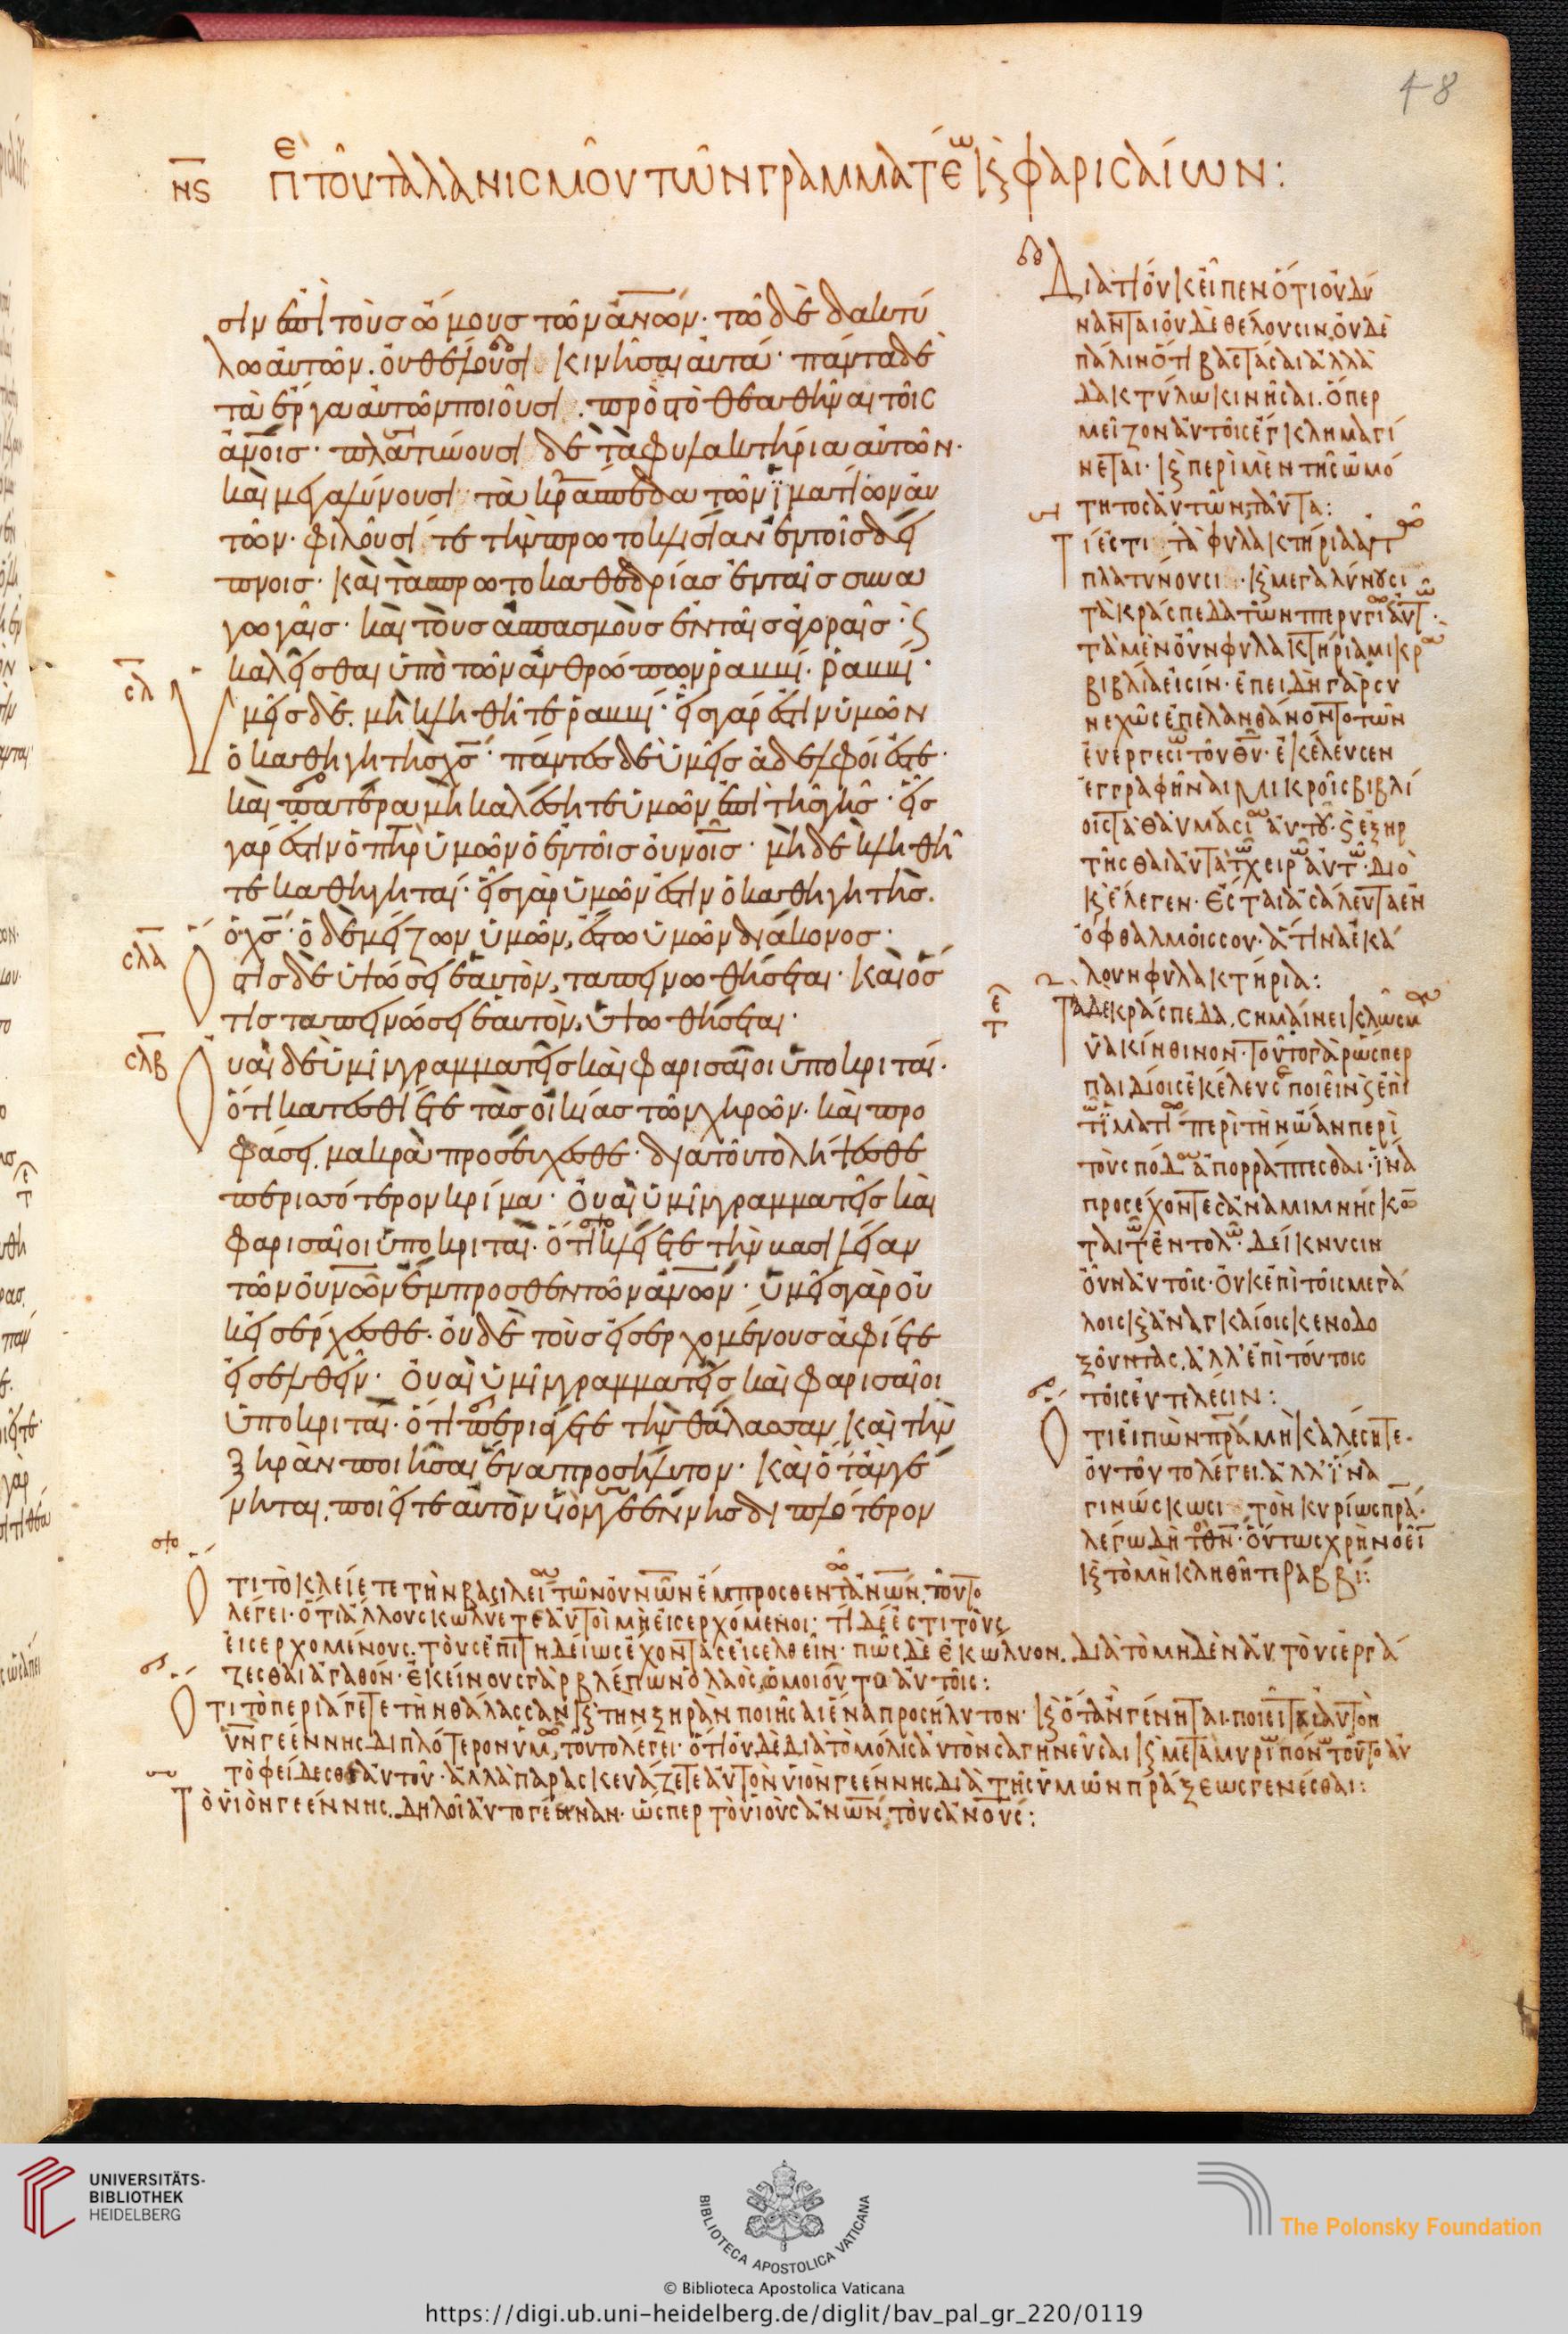 48
νς περὶ τοῦ ταλανισμοῦ τῶν γραμματέω κ φαρισαίων:
σιν ἐπὶ τοὺς ὤμους τῶν ἀνων· τῶ δὲ δακτύ
λω αὐτῶν. οὐ θέλουσι κινῆσαι αὐτά· πάντα δὲ
τὰ ἔργα αὐτῶν ποιοῦσι. πρὸς τὸ θεαθῆναι τοῖς
ἀνοις· πλατύνουσι δὲ τὰ φυλακτήρια αὐτῶν·
καὶ μεγαλύνουσι τὰ κράσπεδα τῶν ϊματίων αὐ
τῶν· φιλοῦσί τε τὴν πρωτοκλισίαν ἐν τοῖς δεί
πνοις· καὶ τὰς πρωτοκαθεδρίας ἐν ταῖς συνα
γωγαῖς· καὶ τοὺς ἀσπασμοὺς ἐν ταῖς ἀγοραῖς· ς
καλεῖσθαι ὑπὸ τῶν ἀνθρώπων ῥαββί· ῥαββί·
σλ ὑμεῖς δὲ. μὴ κληθῆτε ῥαββί· εἷς γάρ ἐστιν ὑμῶν
ὁ καθηγητὴς χς· πάντες δὲ ὑμεῖς ἀδελφοί ἐστε·
καὶ πατέρα μὴ καλέσητε ὑμῶν ἐπὶ τῆς γῆς· εἷς
γάρ ἐστιν ὁ πηρ ὑμῶν ὁ ἐν τοῖς οὐνοις· μὴ δὲ κληθῆ
τε καθηγηταί· εἷς γὰρ ὑμῶν ἐστιν ὁ καθηγητὴς.
ὁ χς· ὁ δὲ μείζων ὑμῶν, ἔστω ὑμῶν διάκονος·
σλα Οστις δὲ ὑψώσει ἑαυτὸν, ταπεινωθήσεται· καὶ ὅσ
τις ταπεινώσει ἑαυτὸν, ὑψωθήσεται·
σλβ Ουαὶ δὲ ὑμῖν γραμματεῖς καὶ φαρισαῖοι ὑποκριταί·
ὅτι κατεσθίετε τὰς οἰκίας τῶν χηρῶν· καὶ προ
φάσει μακρὰ προσευχόμενοι· διατοῦτο λήψεσθε
περισσότερον κρίμα· Οὐαὶ ὑμῖν γραμματεῖς καὶ
φαρισαῖοι ὑποκριταὶ· ὅτι κλείετε τὴν βασιλείαν
τῶν οὐνων ἔμπροσθεν τῶν ἀνων· ὑμεῖς γὰρ οὐ
κεἰσέρχεσθε. οὐδὲ τοὺς εἰσερχομένους ἀφίετε
εἰσελθεῖν· Οὐαὶ ὑμῖν γραμματεῖς καὶ φαρισαῖοι
ὑποκριταὶ· ὅτι περιάγετε τὴν θάλασσαν καὶ τὴν
ξηρὰν ποιῆσαι ἕνα προσήλυτον· καὶ ὅταν γέ
νηται. ποιεῖτε αὐτὸν υἱὸν γεέννης διπλότερον
Διατί οὐκ εἶπεν ὅτι οὐ δύ
νανται οὐδὲ θέλουσιν, οὐδὲ
πάλιν ὅτι βαστάσαι ἀλλὰ
δακτύλω κινῆσαι. ὅπερ
μεῖζον αὐτοῖς ἔγκλημα γί
νεται· κ περὶ μὲν τῆς ὠμό
τητος αὐτῶν, ταῦτα:
Τί ἐστι τὰ φυλακτήρια αὐτ
πλατύνουσι· κ μεγαλύνουσι
τὰ κράσπεδα τῶν πτερυγί αὐτ·
τὰ μὲν οὖν φυλακτήρια μικρ
βιβλία εἰσίν· ἐπειδὴ γὰρ συ
νεχῶς ἐπελανθάνοντο τῶν
ἐυεργεσι τοῦ θυ· ἐκέλευσεν
ἐγγραφῆναι μικροῖς βιβλί
οις τὰ θαύμασι αὐτοῦ· ς ἐξηρ
τῆσθαι αὐτὰ τ χειρ αὐτ· διὸ
κ ἔλεγεν· Ἔσται ἀσάλευτα ἐν
ὀφθαλμοῖς σου· ἅτινα ἐκά
λουν φυλακτήρια:
Τὰ δὲ κράσπεδα, σημαίνει κλῶσμ
ὑακίνθινον· τοῦτο γὰρ ὥσπερ
παιδίοις ἐκέλευσε ποιεῖν ς ἐπὶ
τ ϊματί περὶ τὴν ὤαν περὶ
τοὺς πόδ ἀπορράπτεσθαι· ἵνα
προσέχοντες ἀναμιμνήσκων
ται τ ἐντολ· Δείκνυσιν
οὖν αὐτοῖς· οὐκ ἐπὶ τοῖς μεγά
λοις κ ἀναγκαίοις κενοδο
ξοῦντας, ἀλλ' ἐπὶ τούτοις
τοῖς εὐτελέσιν:
Οτι εἰπὼν πρα μὴ καλέσητε·
οὐ τοῦτο λέγει. ἀλλ' ἵνα
γινώσκωσι τὸν κυρίως πρα·
λέγω δὴ τὸν θν· οὕτως χρὴ νοεῖ
κ τὸ μὴ κληθῆτε ραββί:
Οτι τὸ κλείετε τὴν βασιλεί τῶν οὐνων ἔμπροσθεν τ ἀνων, τοῦτο
λέγει· ὅτι ἄλλους κωλύετε αὐτοὶ μὴ εἰσερχόμενοι· τί δέ ἐστι τοὺς
εἰσερχομένους· τοὺς ἐπιτηδείως ἔχοντας εἰσελθεῖν· πῶς δὲ ἐκώλυον. διὰ τὸ μηδὲν αὐτοὺς ἐργά
ζεσθαι ἀγαθόν· ἐκείνους γὰρ βλέπων ὁ λαὸς, ὁμοιοῦτο αὐτοῖς:
Οτι τὸ περιάγετε τὴν θάλασσαν κ τὴν ξηρὰν ποιῆσαι ἕνα προσήλυτον· κ ὅταν γένηται· ποιεῖται αὐτὸν
υν γεέννης διπλότερον ὑμ, τοῦτο λέγει· ὅτι οὐδὲ διὰ τὸ μόλις αὐτὸν σαγηνεῦσαι κ μετὰ μυρί πόν τούτο αὐ
τὸ φείδεσθε αὐτοῦ· ἀλλὰ παρασκευάζετε αὐτὸν υἱὸν γεέννης διὰ τῆς ὑμῶν πράξεως γενέσθαι:
Τὸ υἱὸν γεέννης. δηλοῖ αὐτογέενναν· ὥσπερ τὸ υἱοὺς ἀνων, τοὺς ἀνους:
UNIVERSITÄTS-
BIBLIOTHEK
HEIDELBERG
BIBLIOTECA APOSTOLICA VATICANA
The Polonsky Foundation
© Biblioteca Apostolica Vaticana
https://digi.ub.uni-heidelberg.de/diglit/bav_pal_gr_220/0119